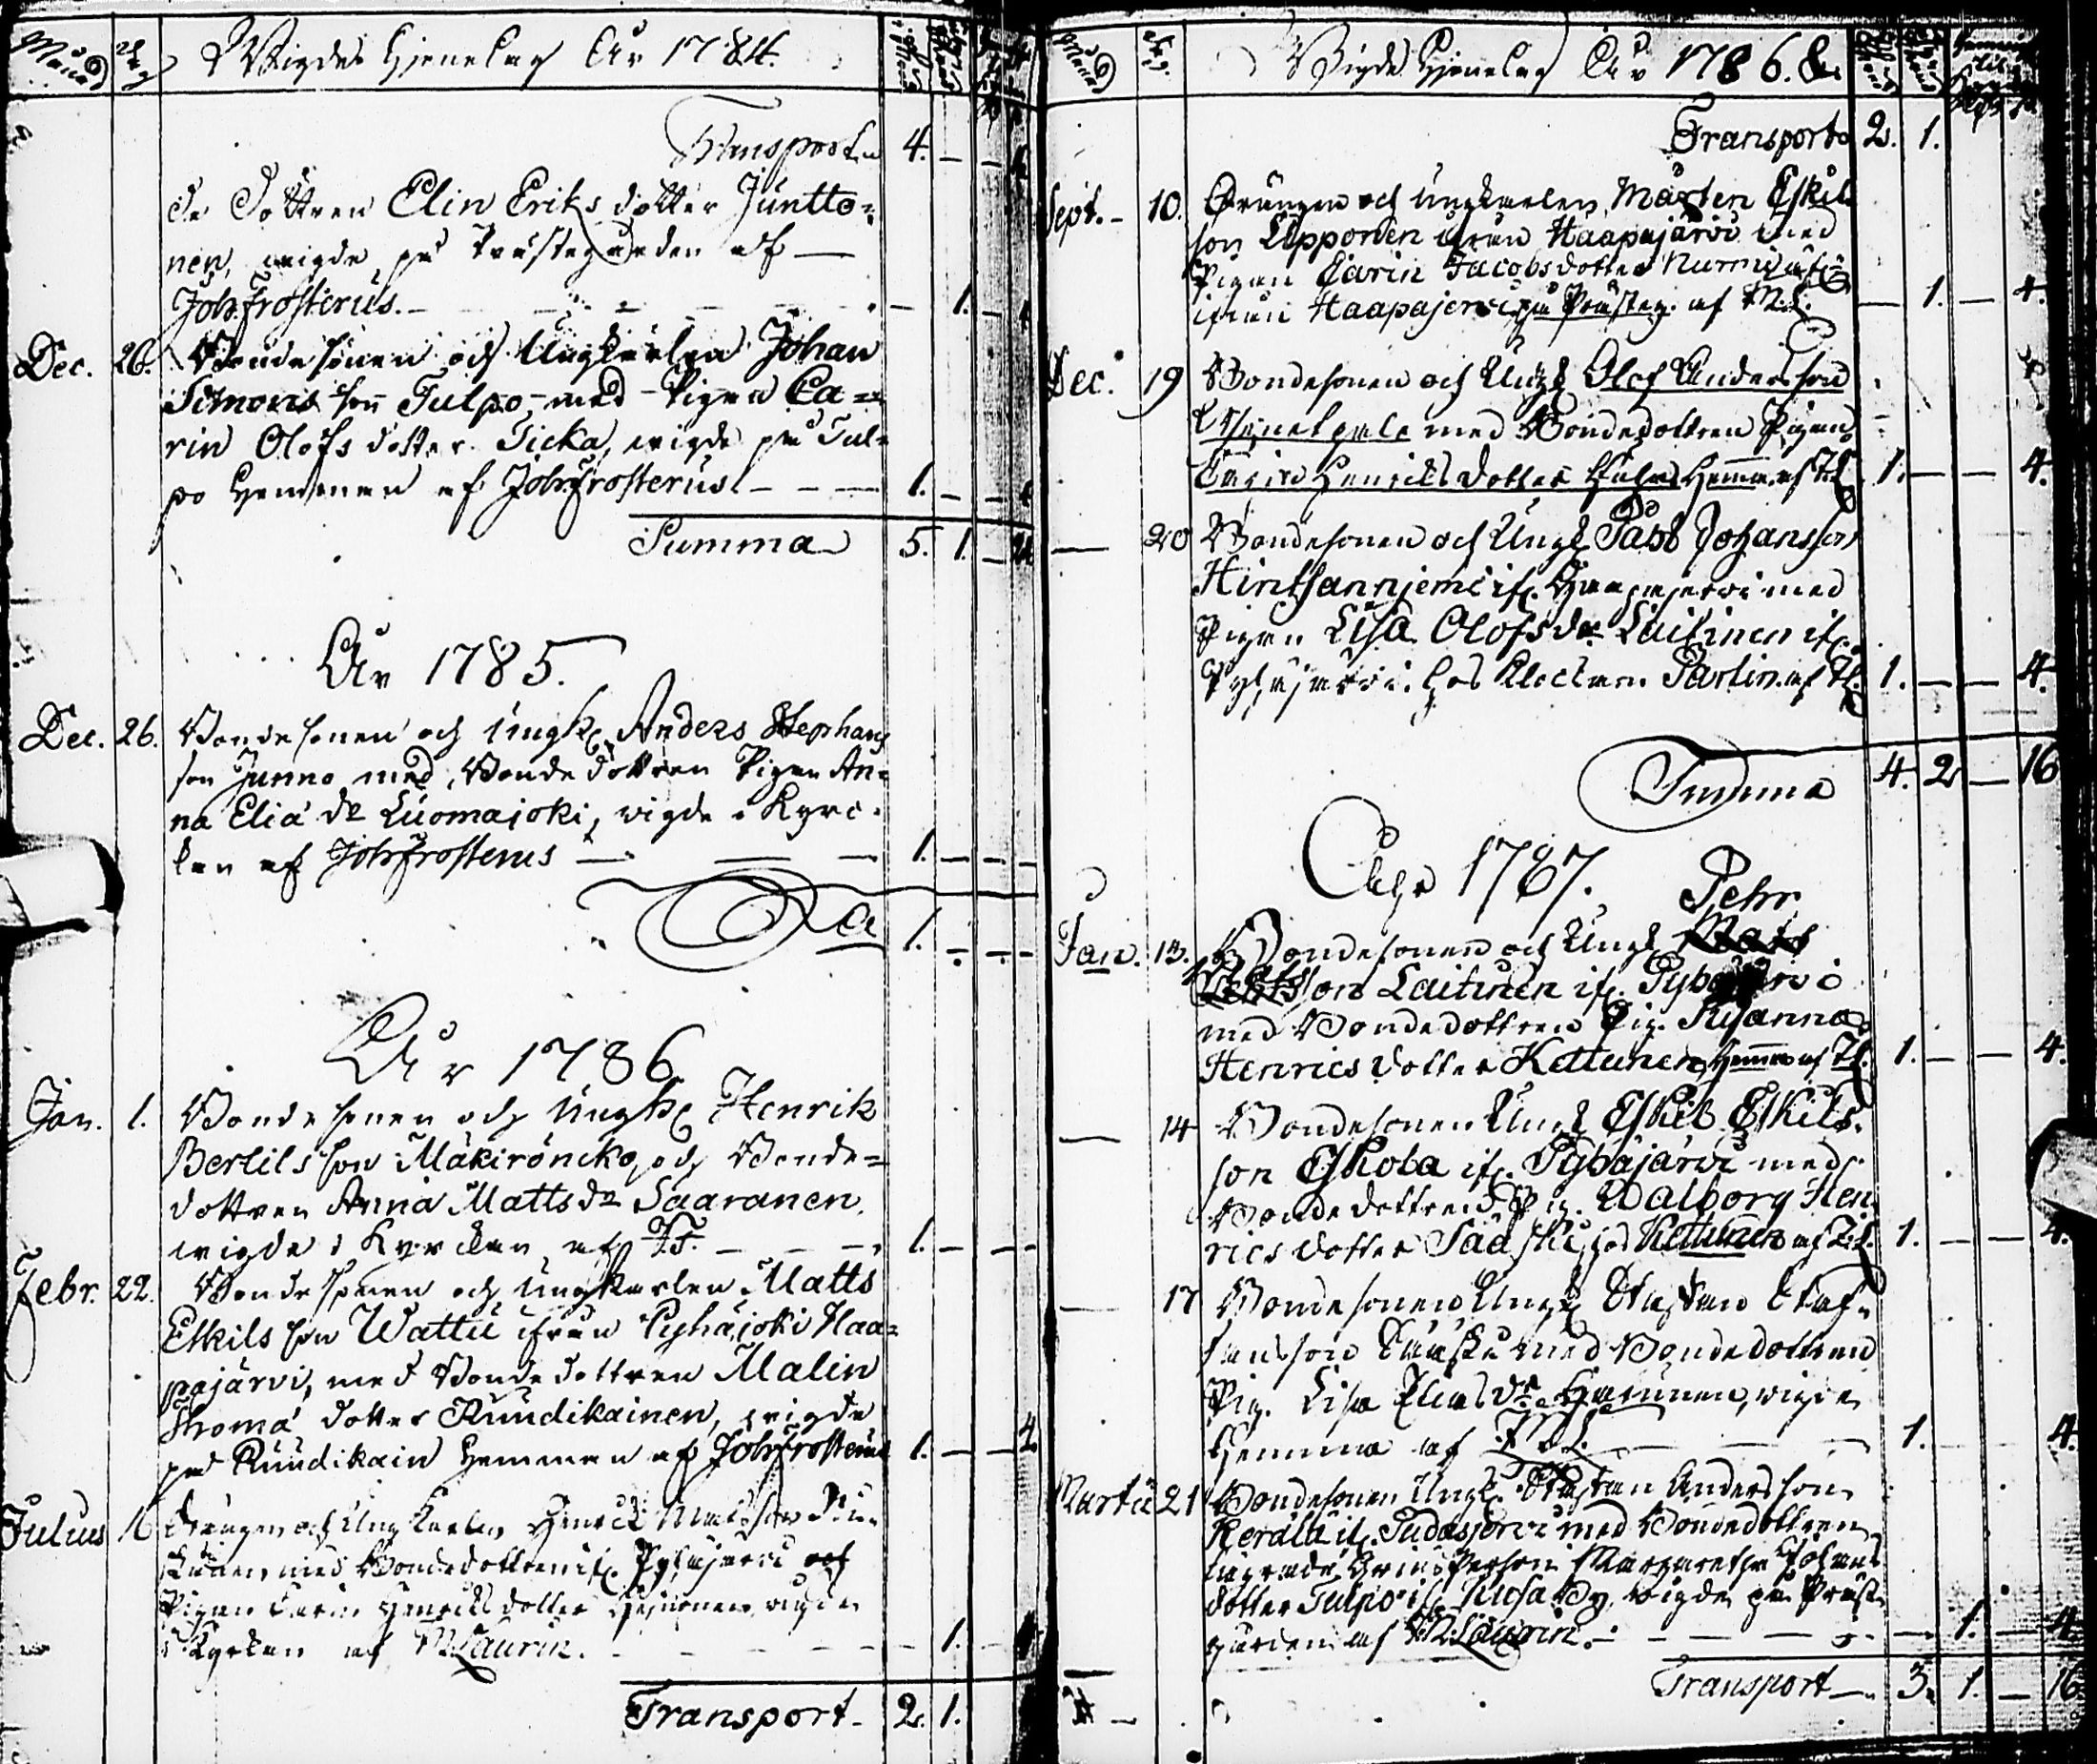 Månad Dag Wigde Hjonelag År 1784.
Transport 4. — —
de dottren Elin Eriks dotter Juntto=
nen, wigde på Prästegården af —
Joh. Frosterus. — — — 1. —
Dec. 26. Bondesonen och Ungkarlen Johan
Simons son Tulpo med Pigan Ca=
rin Olofs dotter Sicka, wigde på Tul=
po Hemman af Joh. Frosterus — — — 1. — —
Summa 5. 1. —
År 1785.
Dec. 26. Bondesonen och Ungk. Anders Stephans
son Junno med Bondedottren Pigan An=
na Eliä dr Luomajoki, wigde i Kyrc=
kan af Joh. Frosterus — — — 1. — — —
1. — — —
År 1786
Jan. 1. Bondesonen och Ungk. Henrik
Bertils son Mäkirönckö, och Bonde=
dottren Anna Matts dr Saaranen.
wigde i Kyrckan af J.F. — — — 1. — — —
Febr. 22. Bondesonen och Ungkarlen Matts
Eskils son Wattu ifrån Pyhäjoki Haa=
pajärvi, med Bondedottren Malin
Thomä dotter Ruudikainen, wigde
på Ruudikain Hemman af Joh. Frosterus 1. — —
Julius 16 Drängen och Ungkarlen Henrick Matsson
med Bondedottren if. Pyhäjerwi och
Pigan Carin Henricks dotter wigde
i Kyrkan af M. Laurin. — — — 1. —
Transport — 2. 1.
Månad Dag. Wigde Hjonelag År 1786.
Transport 2. 1.
Sept. — 10. Drängen och Ungkarlen Mårten Eskils
son Lipponen ifrån Haapajärvi med
Pigan Carin Jacobsdotter
ifrån Haapajerwi på Prästeg. af M.L. — 1. — 4.
Dec. 19 Bondesonen och Ungk. Olof Andersson
med Bondedottren Pigan
Carin Henricks dotter Hemma af M.L. 1. — — 4.
— 20 Bondesonen och Ungk. Påhl Johansson
Hintsanniemi if. Haapajerwi med
Pigan Lisa Olofs dr Laitinen if.
Pyhäjerwi. hos Klockaren Parlin af M.L. 1. — — 4.
Summa 4. 2 — 16
Åhr 1787.
Pehr
Jan. 13. Bondesonen och Ungk.
son Laitinen if. Pyhäjerwi
med Bondedottren Pig. Susanna
Henrics dotter Kettunen, Hemma af M.L. 1. — — 4.
— 14 Bondesonen Ungk. Eskil Eskils=
son Eskola if. Pyhäjärvi med
Bondedottren Pig. Walborg Hen
rics dotter Sääski, hos Kettunen af M.L. 1. — — 4.
— 17 Bondesonen Ungk. Staffan Staf=
fansson Sääski med Bondedottren
Pig. Lisa Elias dr wigde
Hemma af M.L. — — — 1. 4.
Martii 21 Bondesonen Ungk. Staffan Andersson
Kerälä if. Pudasjerwi med Bondedottren
Person Margaretha Johans
dotter Tulpo if. By, wigde på Präste
gården af M. Laurin. — — — 1. — 4.
Transport — 3. 1. — 16